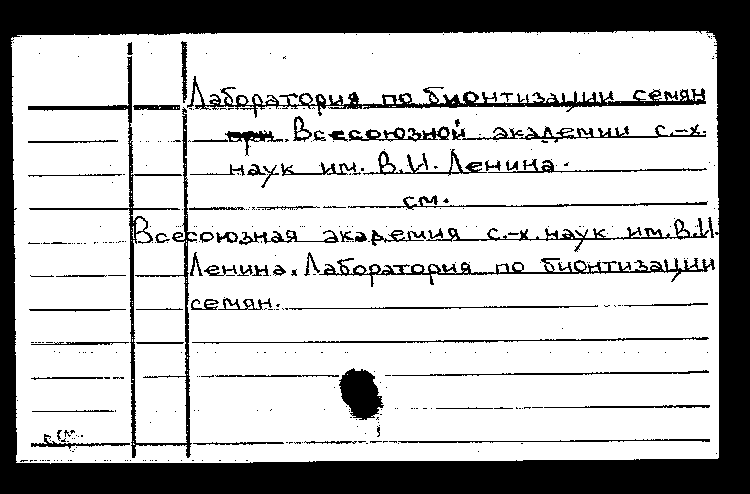 Лаборатория по бионтизации семян
при Всесоюзной академии с.-х.
наук им. В.И. Ленина.
см.
Всесоюзная академия с.-х. наук им. В.И.
Ленина. Лаборатория по бионтизации
семян.